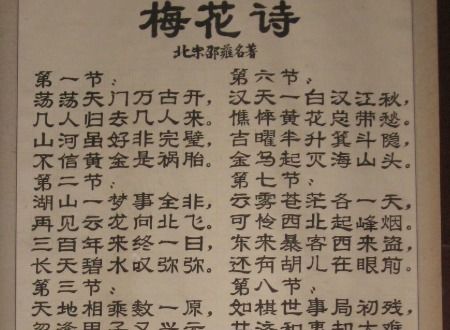 梅花诗
北宋邵雍名著
第一节：
荡荡天门万古开，
几人归去几人来。
山河虽好非完璧，
不信黄金是祸胎。
第二节：
湖山一梦事全非，
再见云龙向北飞。
三百年来终一日，
长天碧水叹弥弥。
第三节：
天地相乘数一原，
忽逢甲子又兴
第六节：
汉天一白汉江秋，
憔悴黄花总带愁。
吉曜半升箕斗隐，
金乌起灭海山头。
第七节：
云雾苍茫各一天，
可怜西北起烽烟。
东来暴客西来盗，
还有胡儿在眼前。
第八节：
如棋世事局初残，
共济和衷